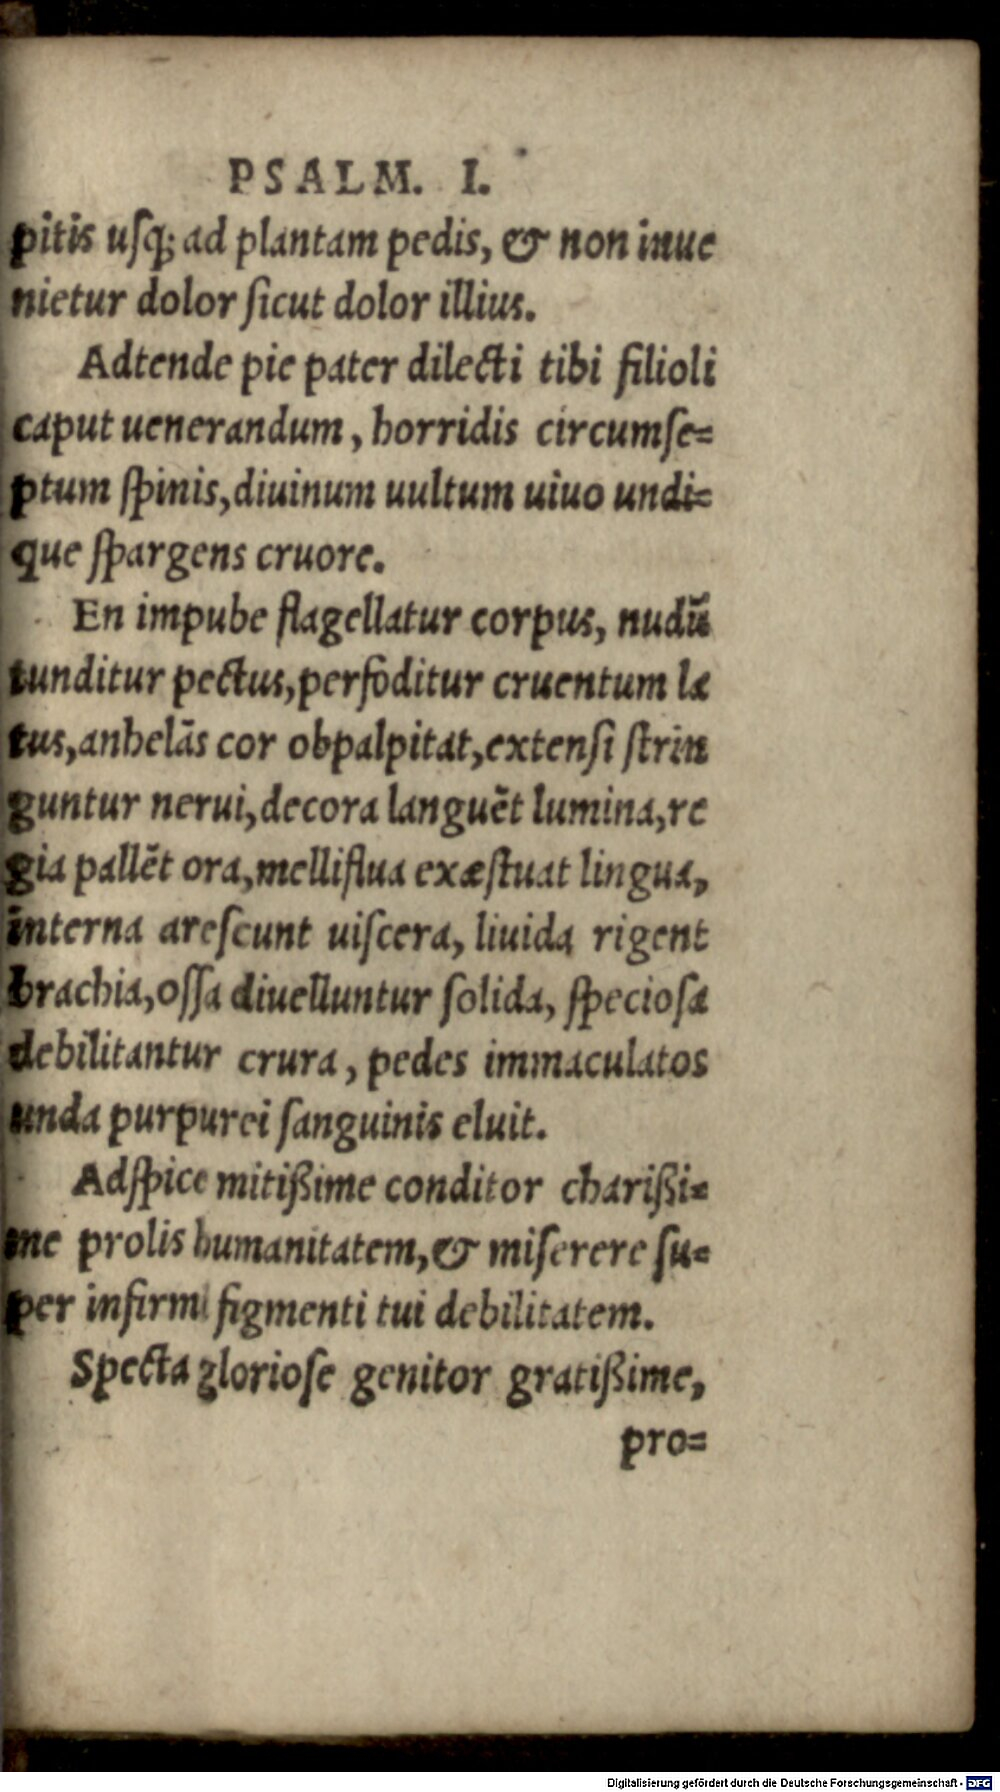 PSALM. I.
pitis uſq; ad plantam pedis, & non inue
nietur dolor ſicut dolor illius.
Adtende pie pater dilecti tibi filioli
caput uenerandum, horridis circumſe=
ptum ſpinis, diuinum uultum uiuo undi=
que ſpargens cruore.
En impube flagellatur corpus, nudū
tunditur pectus, perfoditur cruentum la
tus, anhelās cor obpalpitat, extenſi ſtrin
guntur nerui, decora languēt lumina, re
gia pallēt ora, melliflua exæſtuat lingua,
interna areſcunt uiſcera, liuida rigent
brachia, oſſa diuelluntur ſolida, ſpecioſa
debilitantur crura, pedes immaculatos
unda purpurei ſanguinis eluit.
Adſpice mitißime conditor charißi=
me prolis humanitatem, & miſerere ſu=
per infirmi figmenti tui debilitatem.
Specta glorioſe genitor gratißime,
pro=
Digitalisierung gefördert durch die Deutsche Forschungsgemeinschaft - DFG